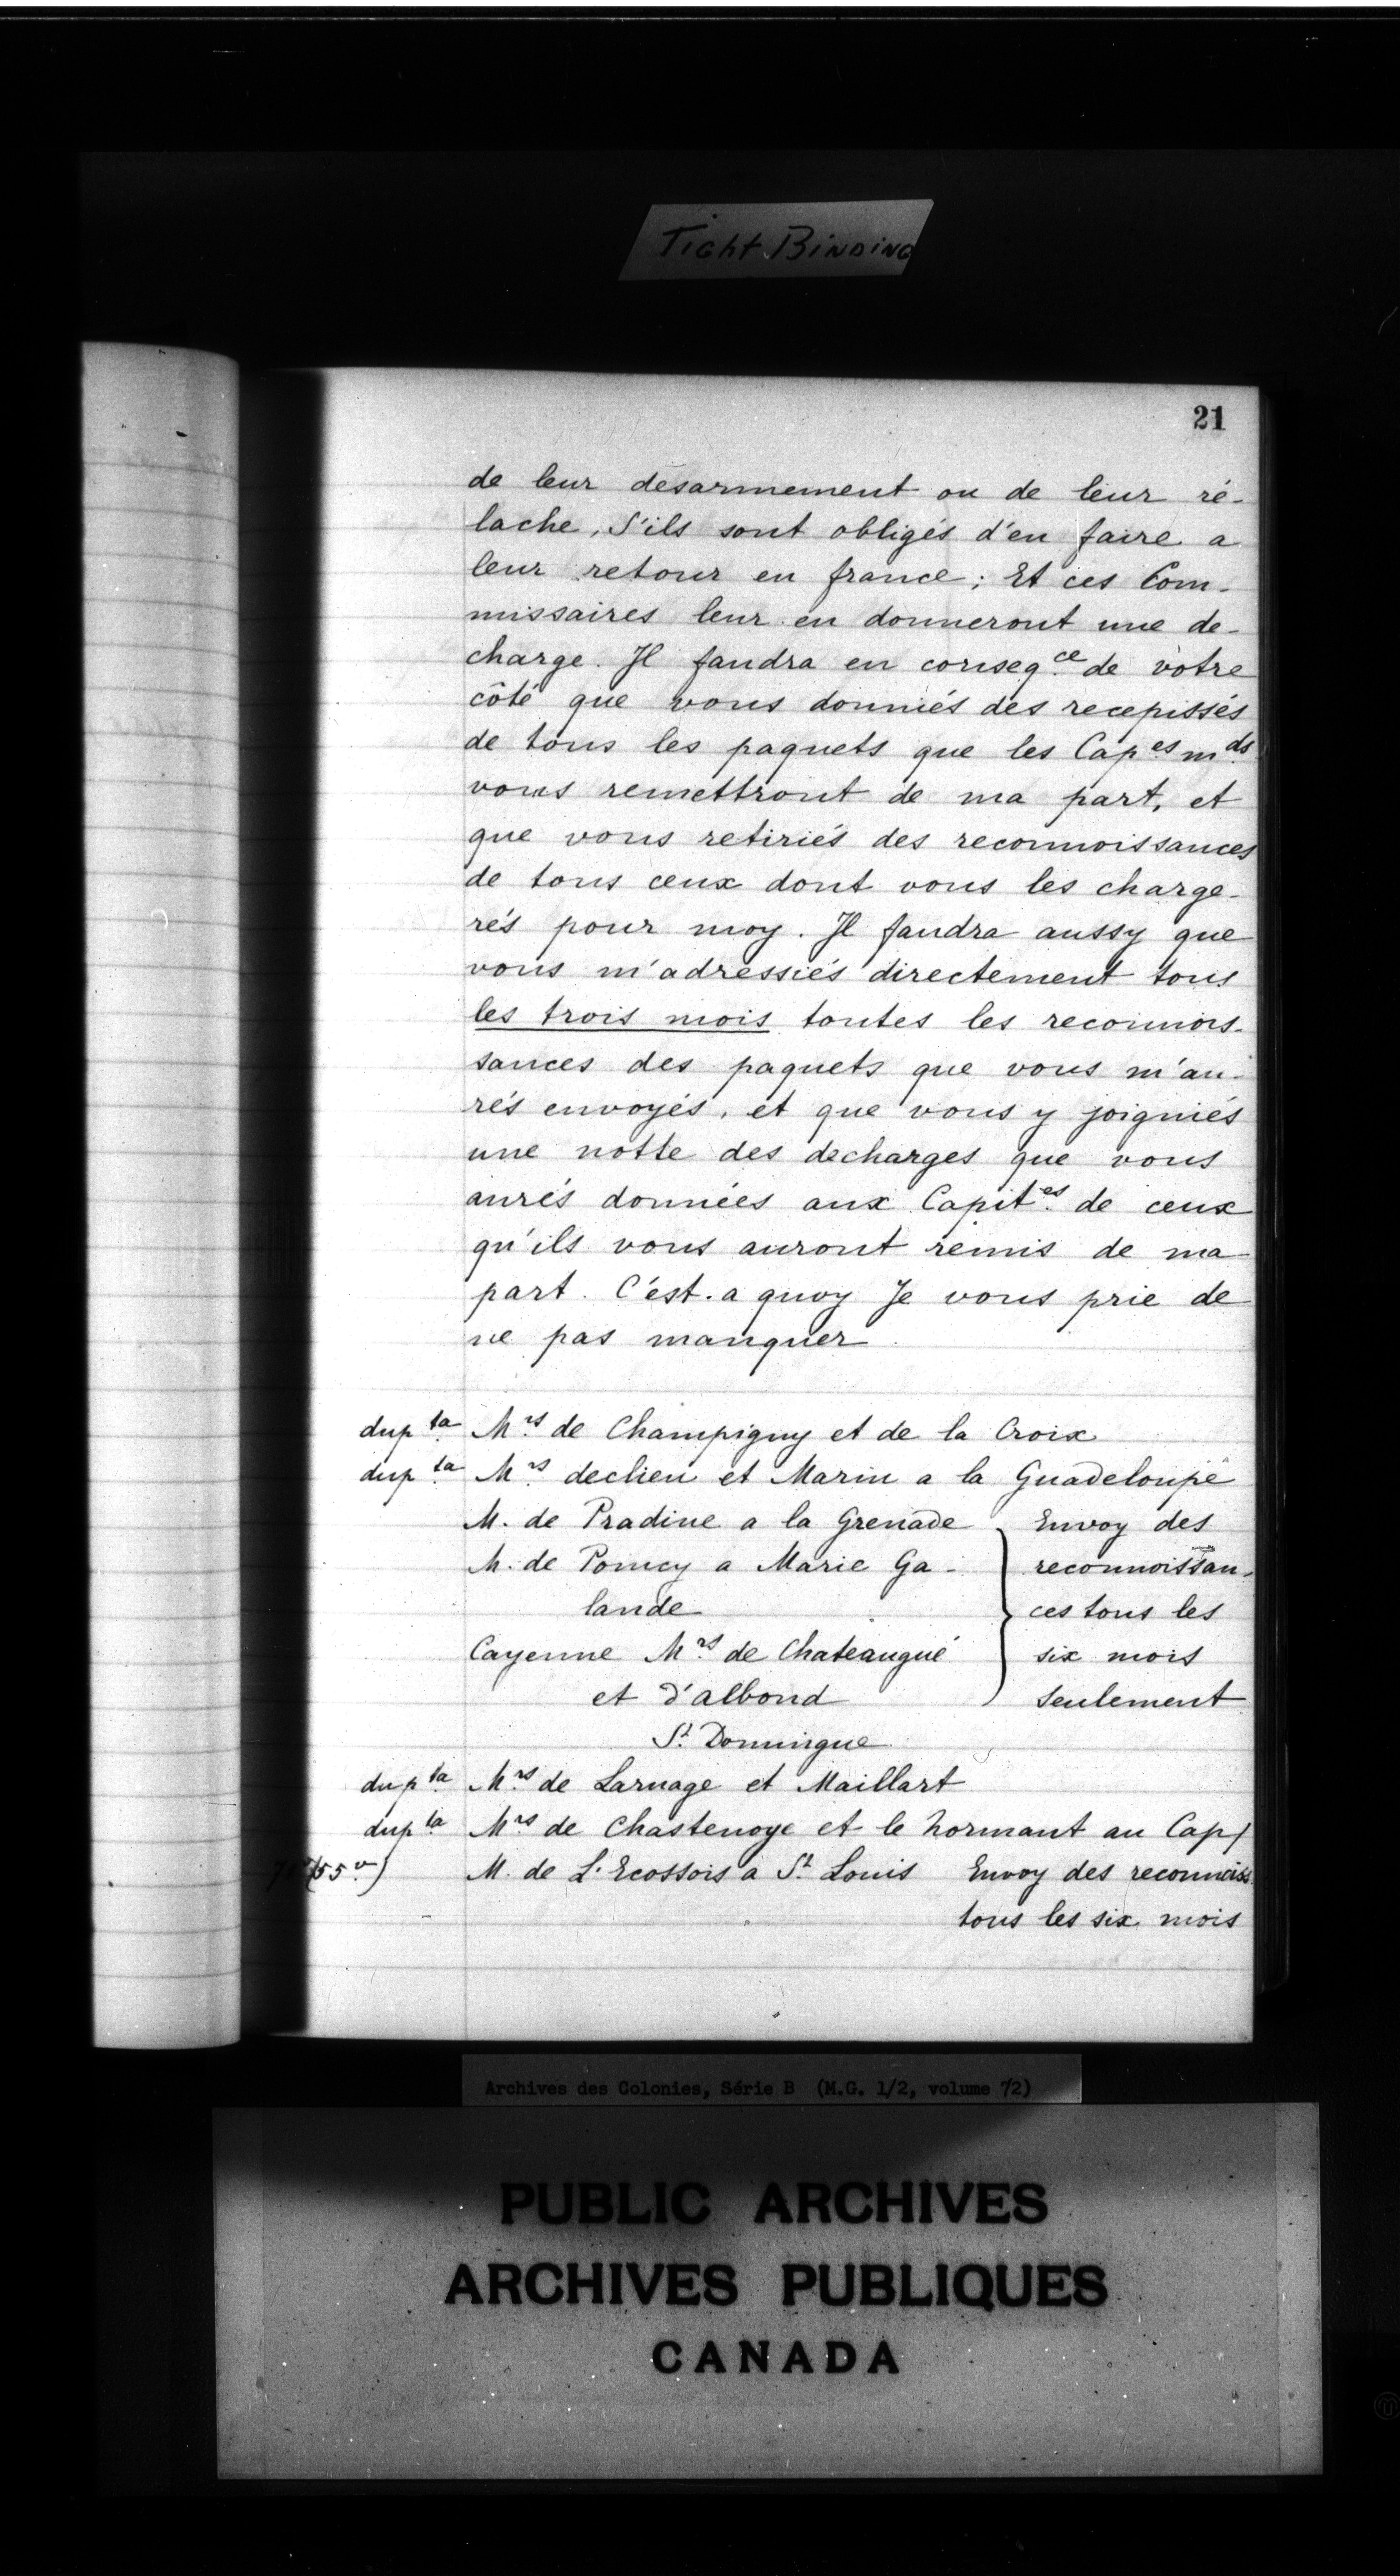 Tight Binding
21
de leur désarmement ou de leur ré-
lache, S'ils sont obligés d'en faire a
leur retour en france; Et ces Com-
missaires leur en donneront une de-
charge. Il faudra en conseq.ce de votre
côté que vous donniés des recepissés
de tous les paquets que les Cap.es m.ds
vous remettront de ma part, et
que vous retiriés des reconnoissances
de tous ceux dont vous les charge-
rés pour moy. Il faudra aussy que
vous m'adressiés directement tous
les trois mois toutes les reconnois-
sances des paquets que vous m'au-
rés envoyés, et que vous y joigniés
une notte des decharges que vous
aurés données aux Capit.es de ceux
qu'ils vous auront remis de ma
part. C'ést a quoy Je vous prie de
ne pas manquer.
dup.ta M.rs de Champigny et de la Croix
dup.ta M.rs declieu et Marin a la Guadeloupe
M. de Pradine a la Grenade } Envoy des
M. de Poincy a Marie Ga- reconnoissan-
lande ces tous les
Cayenne M.rs de Chateaugué six mois
et d'albond Seulement
S.t Domingue
dup.ta M.rs de Larnage et Maillart
dup.ta M.rs de Chastenoye et le hormant au Cap/
(55 v.) M. de L'Ecossois a S.t Louis Envoy des reconnoiss.
tous les six mois
Archives des Colonies, Série B (M.G. 1/2, volume 72)
PUBLIC ARCHIVES
ARCHIVES PUBLIQUES
CANADA